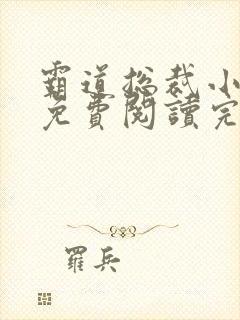 霸道總裁小
免費閱讀完
羅兵